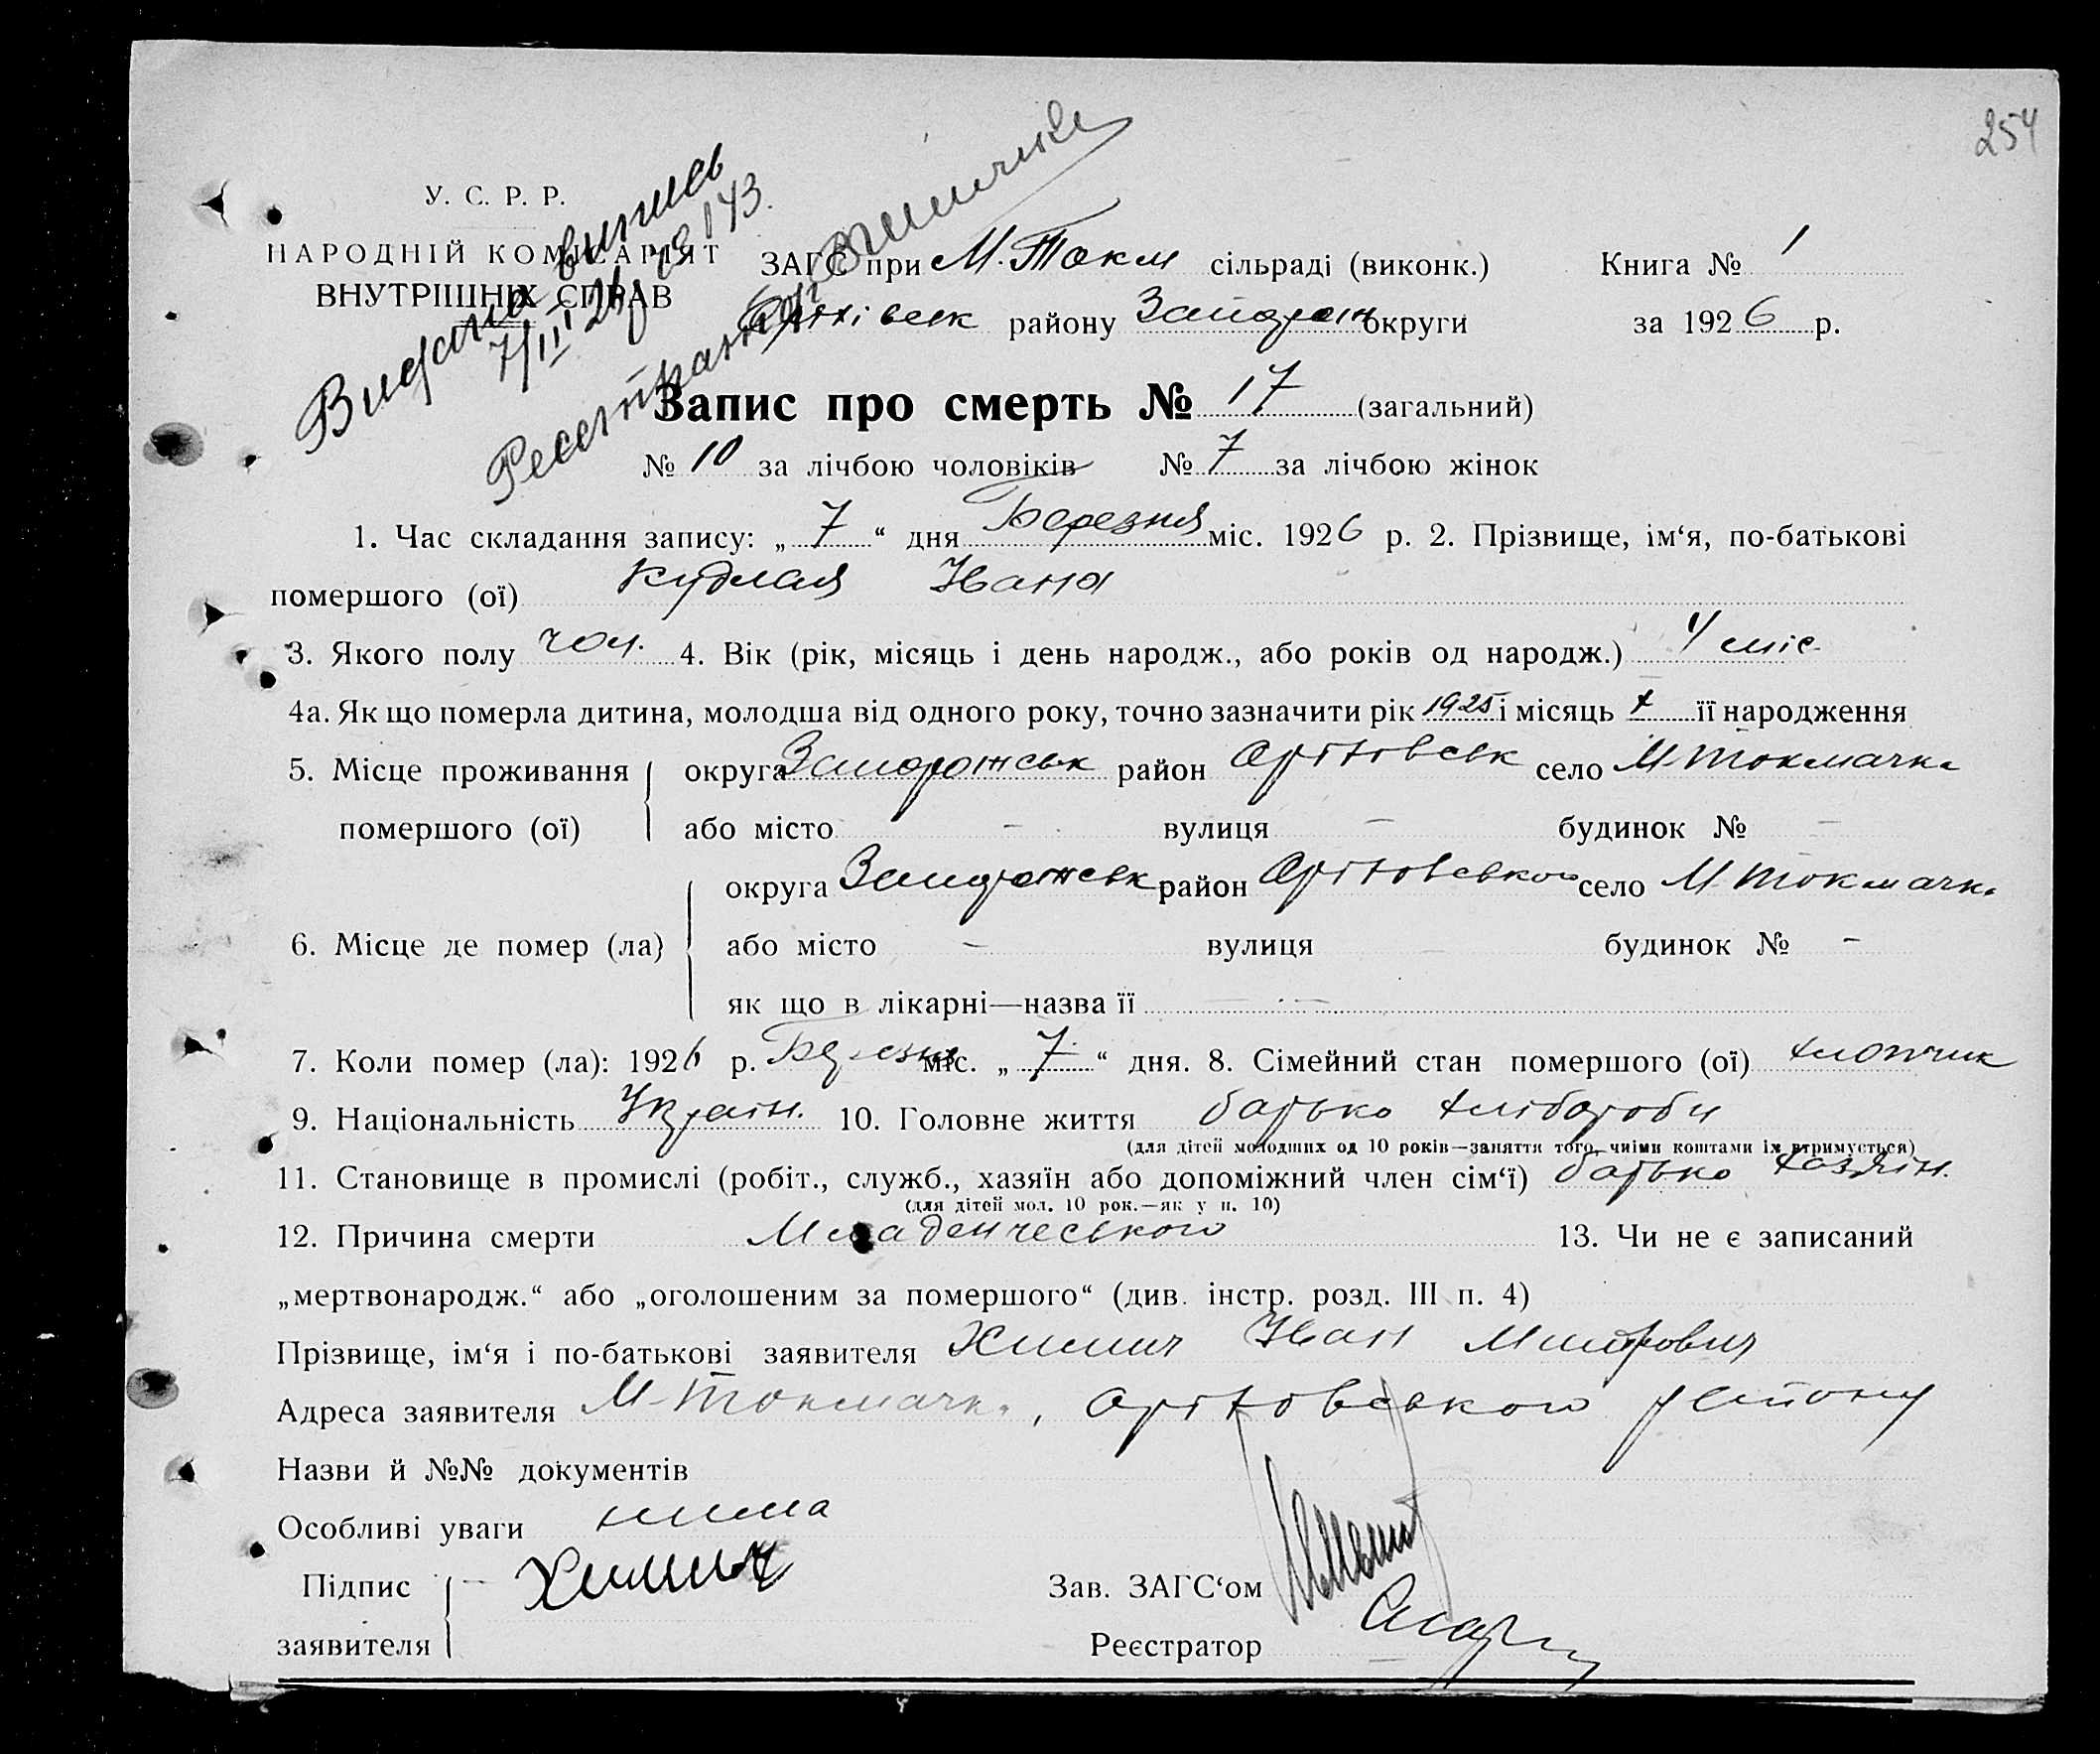 254
У. С. Р. Р.
НАРОДНІЙ КОМІСАРІЯТ
ВНУТРІШНІХ СПРАВ
Видана випись
ЗАГС при М. Токм сільраді (виконк.) Книга № 1
району округи за 1926 р.
Запис про смерть № 17 (загальний)
№ 10 за лічбою чоловіків № 7 за лічбою жінок
1. Час складання запису: „ 7 “ дня Березня міс. 1926 р. 2. Прізвище, ім‘я, по-батькові
помершого (ої) Кудлая Івана
3. Якого полу чол. 4. Вік (рік, місяць і день народж., або років од народж.) 4 міс
4а. Як що померла дитина, молодша від одного року, точно зазначити рік 1925 і місяць х її народження
5. Місце проживання округа Запорожськ район село М-Токмачка
помершого (ої) або місто - вулиця - будинок № -
округа Запорожськ район село М-Токмачка
6. Місце де помер (ла) або місто - вулиця будинок № -
як що в лікарні—назва її —
7. Коли помер (ла): 1926 р. Березня міс. „ 7 “ дня. 8. Сімейний стан помершого (ої) хлопчик
9. Національність Україн. 10. Головне життя батько хлібороби
(для дітей молодших од 10 років—заняття того, чиїми коштами їх втримується)
11. Становище в промислі (робіт., служб., хазяїн або допоміжний член сім‘ї) батько хазяін.
(для дітей мол. 10 рок.—як у п. 10)
12. Причина смерти Младенчеського 13. Чи не є записаний
„мертвонародж.“ або „оголошеним за помершого“ (див. інстр. розд. III п. 4)
Прізвище, ім‘я і по-батькові заявителя Химич Іван
Адреса заявителя М-Токмачка, району
Назви й №№ документів
Особливі уваги нима
Підпис Химич Зав. ЗАГС‘ом
заявителя Реєстратор